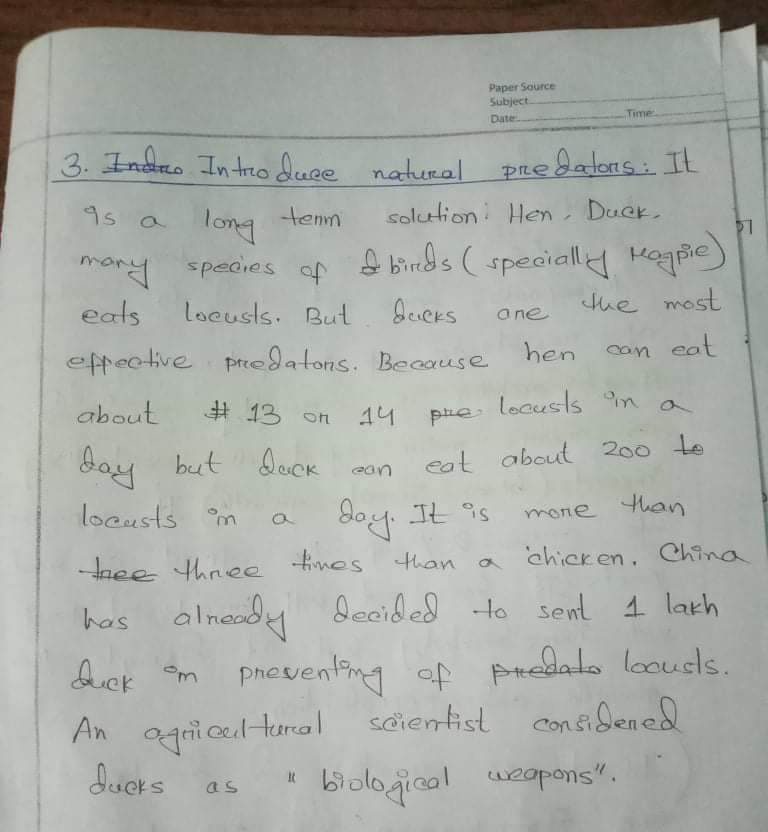 Paper Source
Subject
Date: Time:
3. Indro Introduce natural predators: It
is a long term solution: Hen, Duck,
many species of birds (specially Magpie)
eats locusts. But ducks are the most
effective predators. Because hen can eat
about # 13 or 14 pre locusts in a
day but duck can eat about 200 to
locusts in a day. It is more than
tree three times than a chicken. China
has already decided to sent 1 lakh
duck in preventing of predato locusts.
An agricultural scientist considered
ducks as "biological weapons".